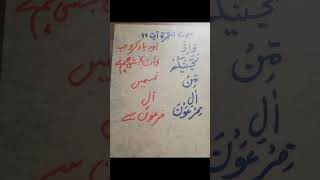 سورۃ البقرۃ آیت
وَاِذْ اور یاد کرو جب
نَجَّیْنٰکُمْ نجات بخشی ہم نے
مِّنْ تمہیں
اٰلِ آل
فِرْعَوْنَ فرعون سے